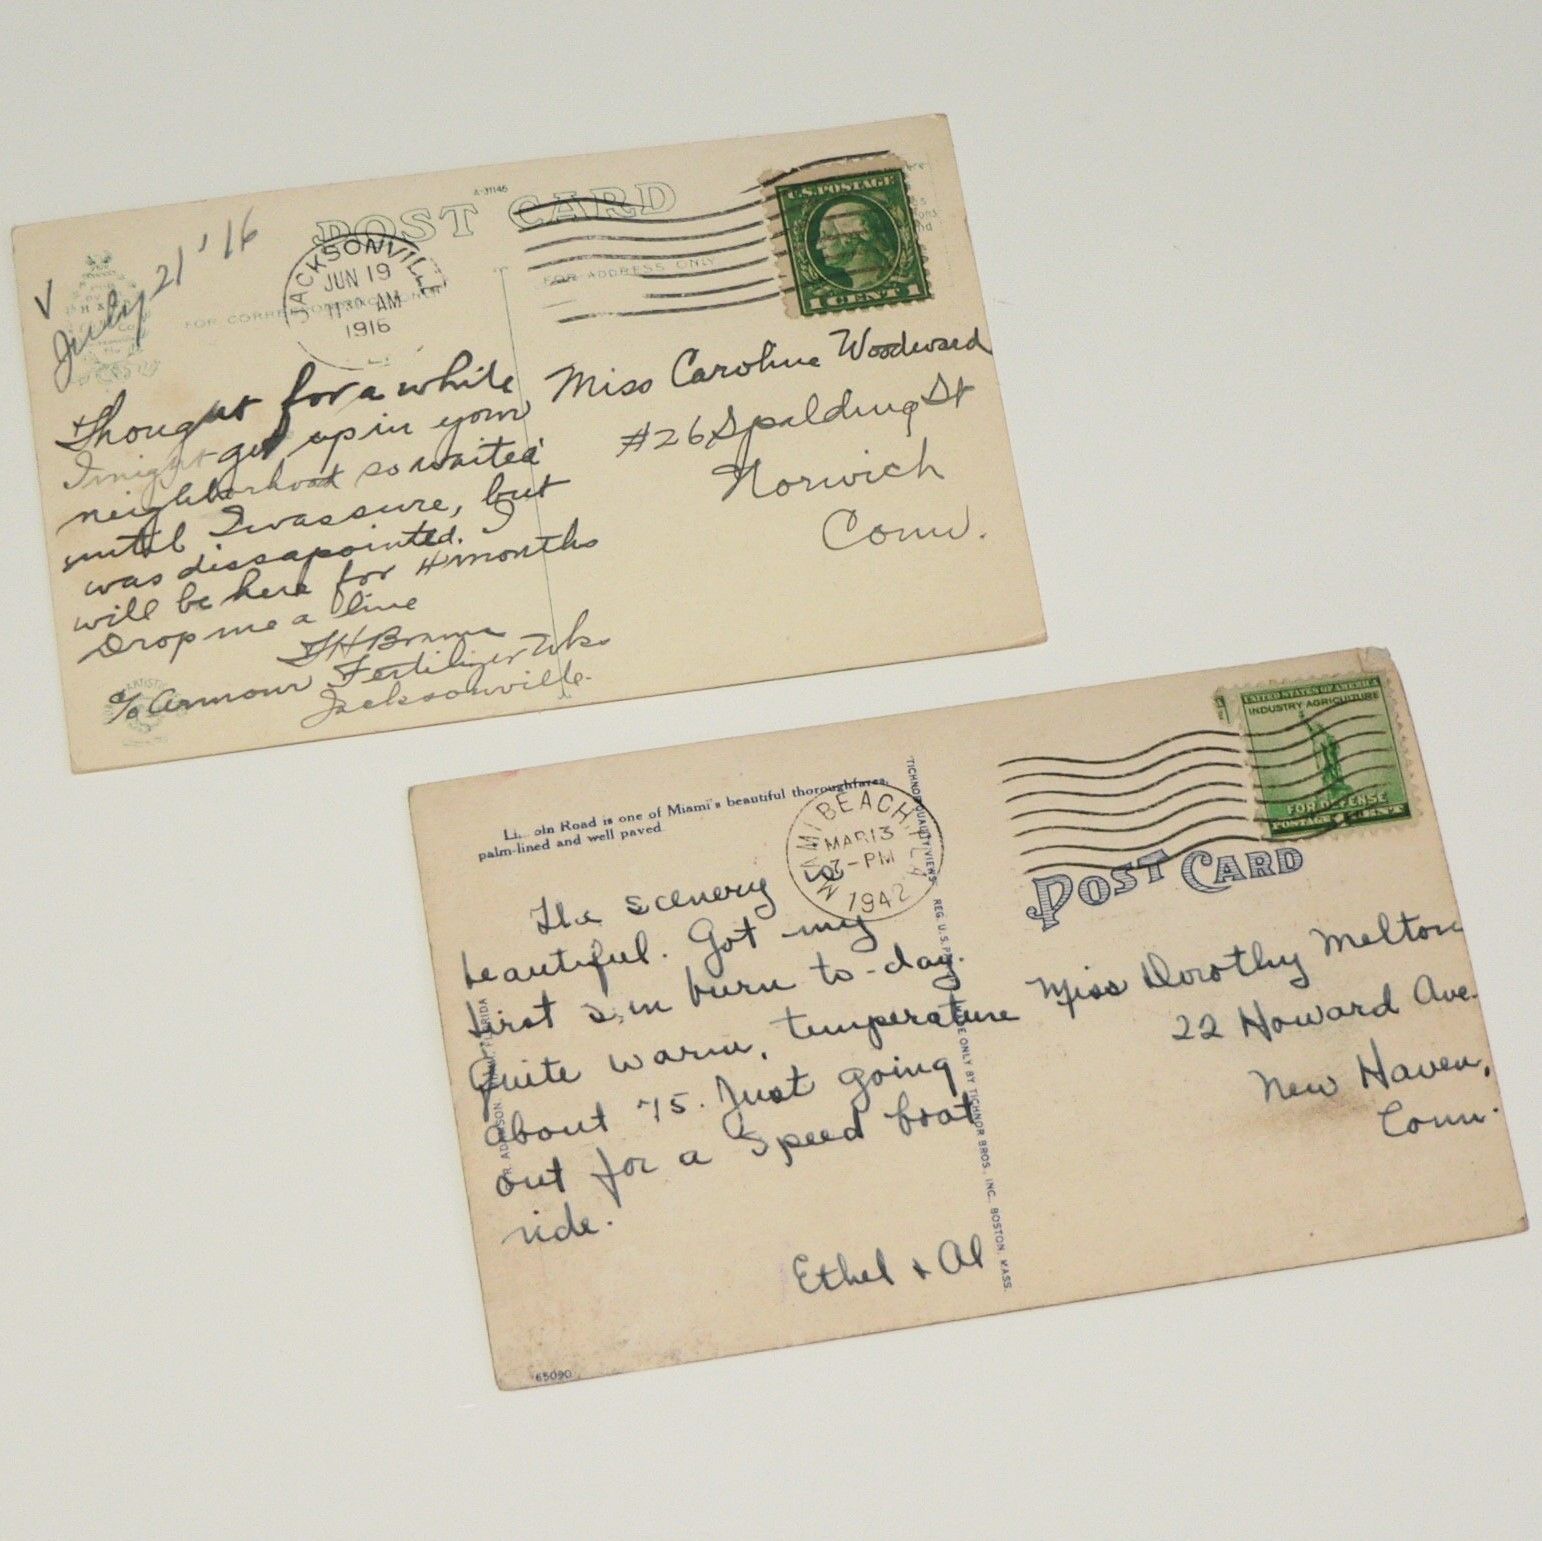 A-31146
POST CARD
July 21 '16
JACKSONVILLE
JUN 19
11 30 AM
1916
FOR CORRESPONDENCE
FOR ADDRESS ONLY
U.S. POSTAGE
1 CENT 1
Thought for a while
I might get up in your
neighborhood so waited
until I was sure, but
was dissapointed. I
will be here for 4 months
Drop me a line
c/o Armour Fertilizer Wks
Jacksonville.
Miss Caroline Woodward
#26 Spalding St
Norwich
Conn.
Lincoln Road is one of Miami's beautiful thoroughfares,
palm-lined and well paved.
MIAMI BEACH, FLA
MAR 13
PM
1942
UNITED STATES OF AMERICA
INDUSTRY AGRICULTURE
FOR DEFENSE
POSTAGE 1 CENT
POST CARD
The scenery is
beautiful. Got my
first sun burn to-day.
Quite warm, temperature
about 75. Just going
out for a speed boat
ride.
Ethel & Al
Miss Dorothy Melton
22 Howard Ave.
New Haven,
Conn.
"TICHNOR QUALITY VIEWS" REG. U.S. MADE ONLY BY TICHNOR BROS., INC., BOSTON, MASS.
65090